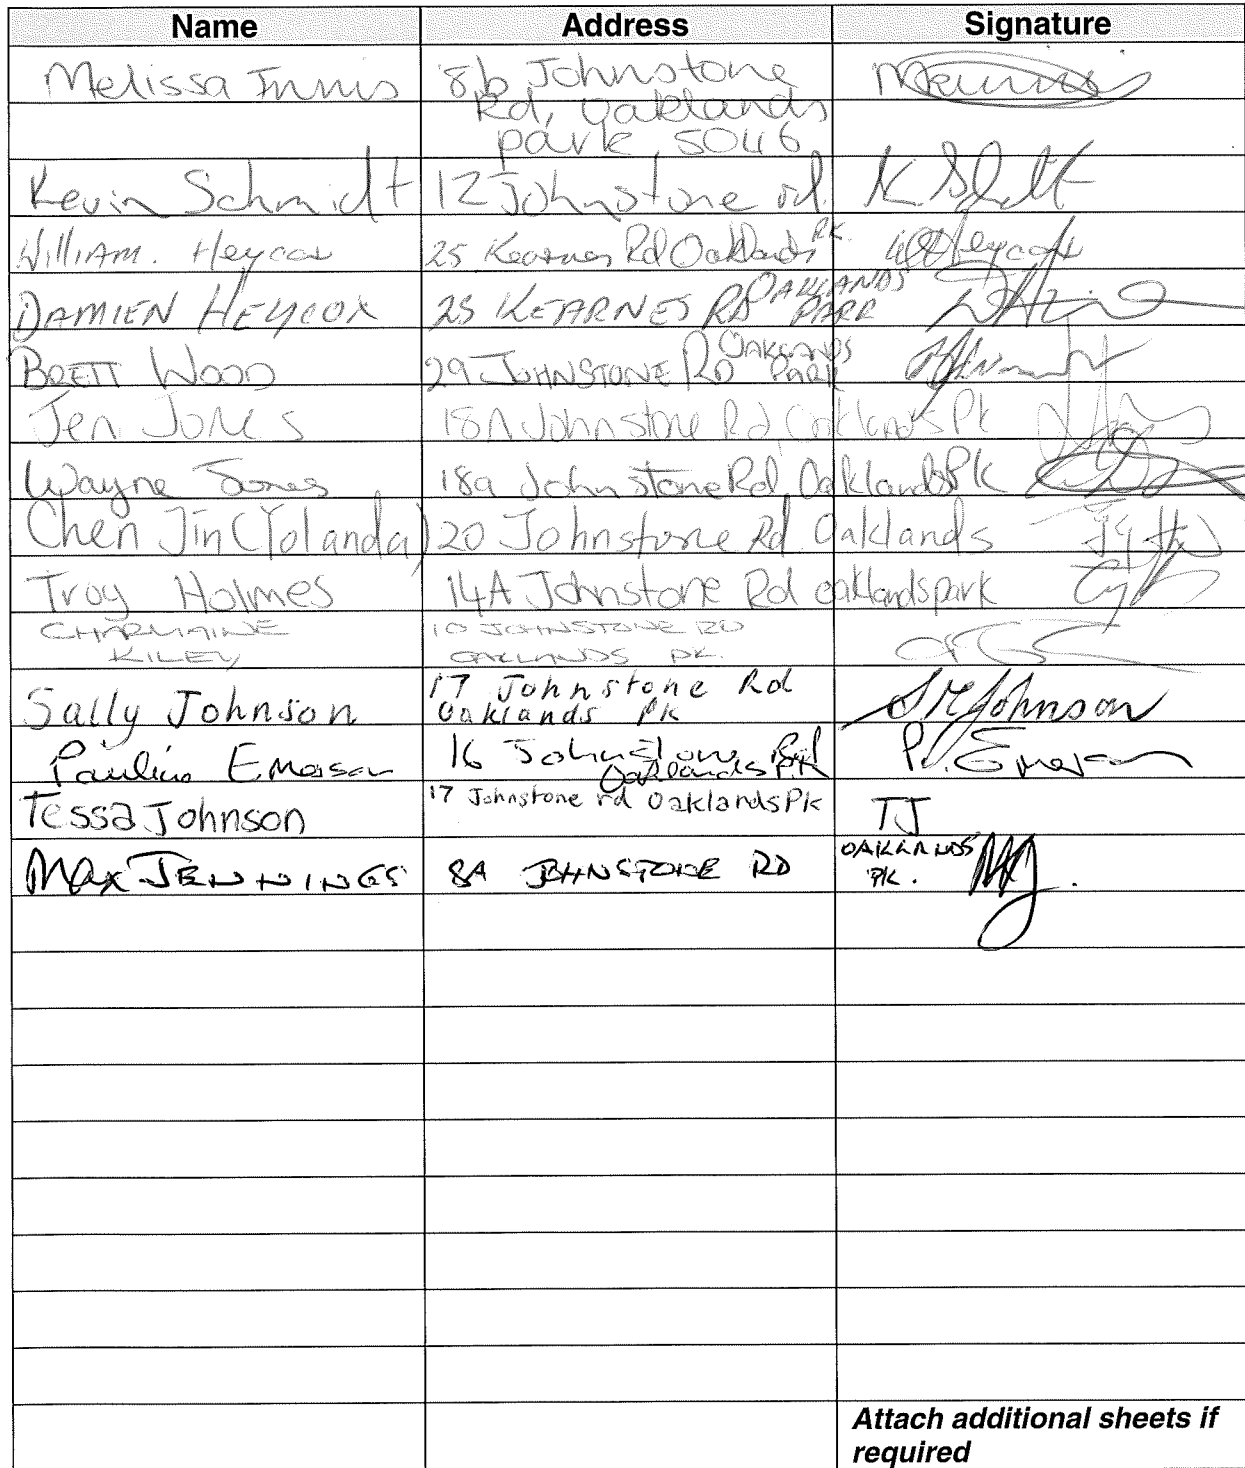 Name Address Signature
Melissa Innis 8b Johnstone
Rd, Oaklands
park 5046
Kevin Schmidt 12 Johnstone rd.
William. Heycox 25 Kearnes Rd Oaklands PK. Heycox
DAMIEN HEYCOX 25 KEARNES RD OAKLANDS PARK
BRETT WOOD 29 JOHNSTONE RD OAKLANDS PARK
Jen Jones 18A Johnstone Rd, Oaklands Pk
Wayne Jones 18a Johnstone Rd, Oaklands Pk
Chen Jin (Yolanda) 20 Johnstone Rd Oaklands
Troy Holmes 14A Johnstone Rd oaklands park
CHARMAINE 10 JOHNSTONE RD
KILEY OAKLANDS PK.
Sally Johnson 17 Johnstone Rd
Oaklands Pk Johnson
Pauline Emerson 16 Johnstone Rd
Oaklands PK P. Emerson
Tessa Johnson 17 Johnstone rd Oaklands Pk TJ
MAX JENNINGS 8A JOHNSTONE RD OAKLANDS
PK. MJ.
Attach additional sheets if
required